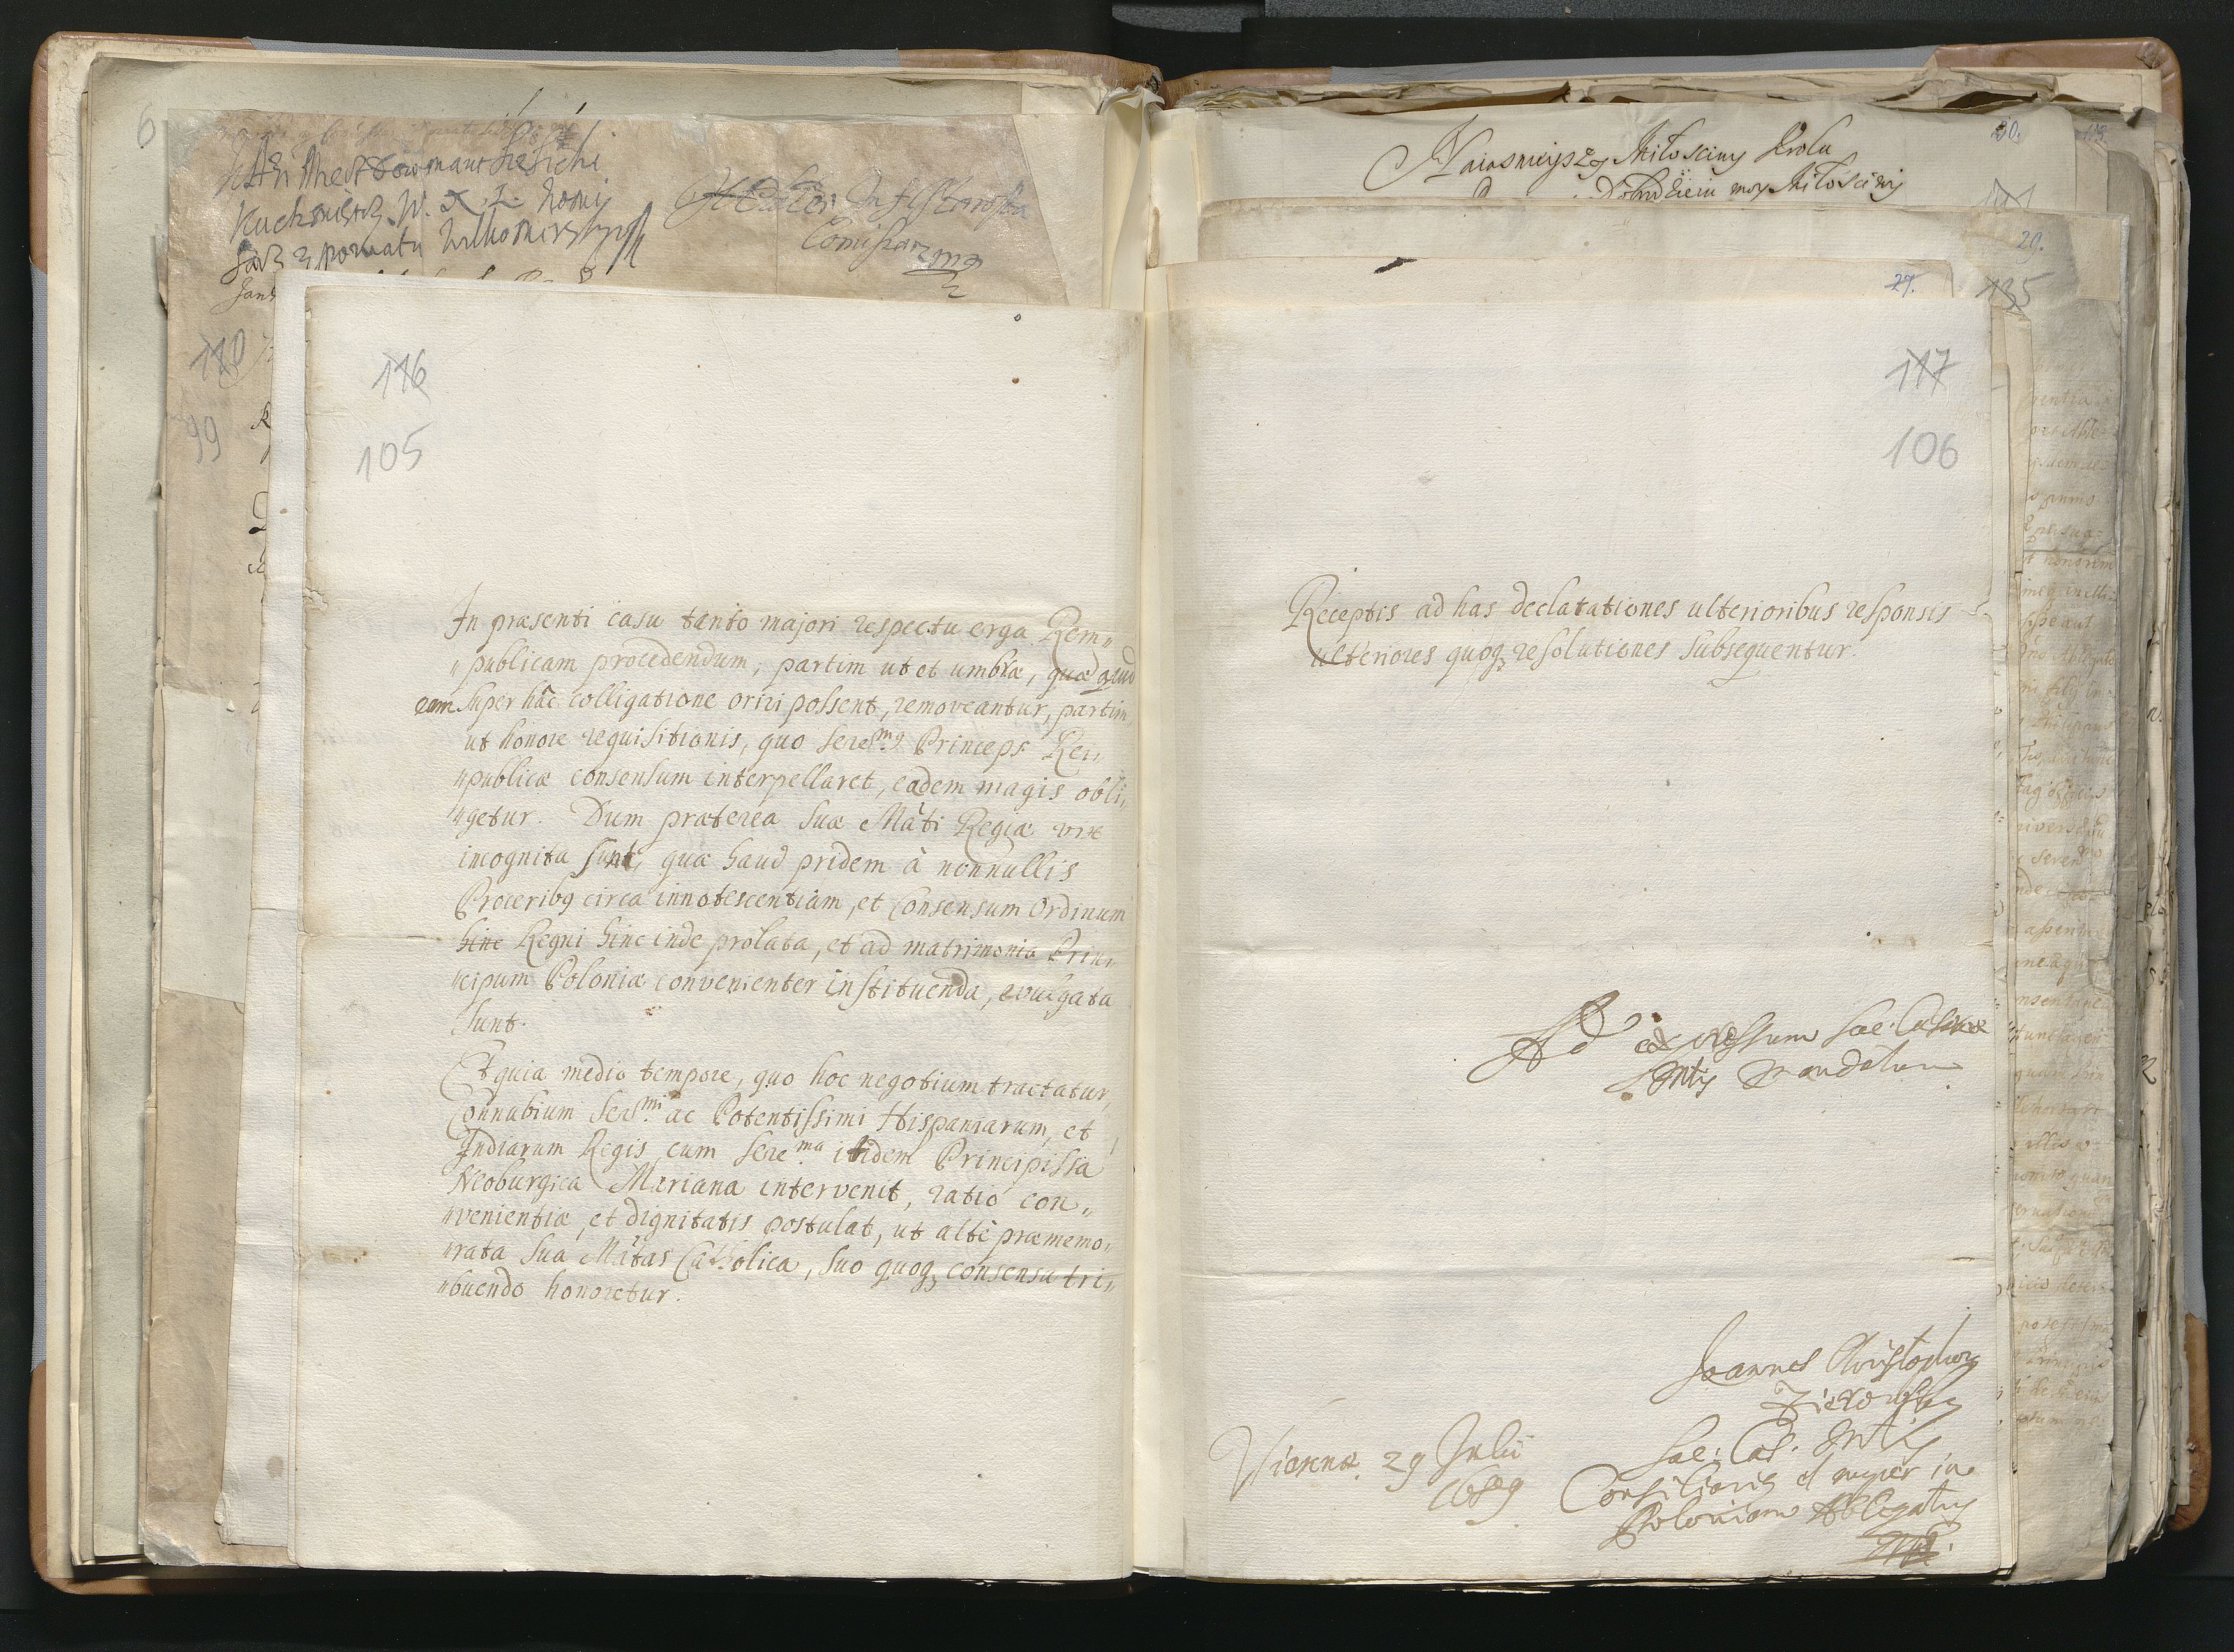 6
Kuchmistrz W. X. L.
Comissarz mp
110
99
116
105
In præsenti casu tanto majori respectu erga Rem„
„publicam procedendum, partim ut et umbræ, quæ apud
eam super hâc colligatione oriri possent, removeantur, partim
ut honore requisitionis, quo Seresm9 Princeps Rei„
„publicæ consensum interpellaret, eadem magis obli„
„getur. Dum præterea Suæ Mâti Regiæ vix
incognita sunt, quæ haud pridem à nonnullis
Procerib9 circa innotescentiam, et consensum Ordinum
hinc Regni hinc inde prolata, et ad matrimonia Prin„
„cipum Poloniæ convenienter instituenda, evulgata
sunt.
Et quia medio tempore, quo hoc negotium tractatur,
Connubium Sermi ac Potentissimi Hispaniarum, et
Indiarum Regis, cum Serema itidem Principissa
Neoburgica Mariana intervenit, ratio con„
„venientiæ, et dignitatis postulat, ut altè præmemo„
„rata Sua Mâtas Catholica, suo quoq3 consensu tri„
„buendo honoretur.
30.
Naiasnieyszy Miłosciwy Krolu
Dobrodzieiu moy Miłosciwy
29.
135
27.
117
106
Receptis ad has declarationes ulterioribus responsis
ulteriores quoq3 resolutiones subsequentur.
Ad expressum Sac: Cæsareæ
Mtis mandatum
Joannes Christophorus
Zierowsky
Sac: Cæs: Mtis
Consiliarius et nuper in
Poloniam Ablegatus
mp.
Viennæ 29 Julii
1689